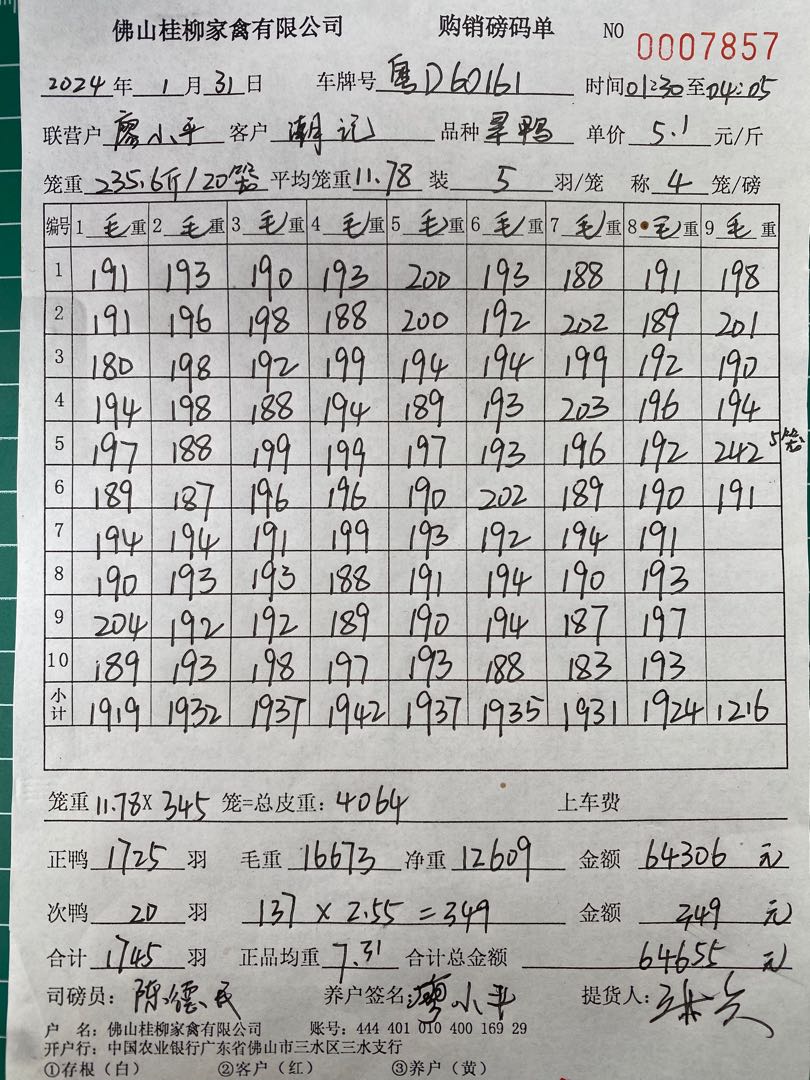 佛山桂柳家禽有限公司 购销磅码单 NO 0007857
2024年 1月31日 车牌号 粤D60161 时间01:30至04:05
联营户 廖小平 客户 潮记 品种 旱鸭 单价 5.1 元/斤
笼重 235.6斤/20笼 平均笼重11.78 装 5 羽/笼 称 4 笼/磅
编号 1毛重 2毛重 3毛重 4毛重 5毛重 6毛重 7毛重 8毛重 9毛重
1 191 193 190 193 200 193 188 191 198
2 191 196 198 188 200 192 202 189 201
3 180 198 192 199 194 194 199 192 190
4 194 198 188 194 189 193 203 196 194
5 197 188 199 199 197 193 196 192 242 5笼
6 189 187 196 196 190 202 189 190 191
7 194 194 191 199 193 192 194 191
8 190 193 193 188 191 194 190 193
9 204 192 192 189 190 194 187 197
10 189 193 198 197 193 188 183 193
小计 1919 1932 1937 1942 1937 1935 1931 1924 1216
笼重11.78X 345 笼=总皮重：4064 上车费
正鸭 1725 羽 毛重 16673 净重 12609 金额 64306 元
次鸭 20 羽 137 × 2.55 = 349 金额 349 元
合计 1745 羽 正品均重 7.31 合计总金额 64655 元
司磅员：陈德民 养户签名 廖小平 提货人：
户 名：佛山桂柳家禽有限公司 账号：444 401 010 400 169 29
开户行：中国农业银行广东省佛山市三水区三水支行
①存根（白） ②客户（红） ③养户（黄）